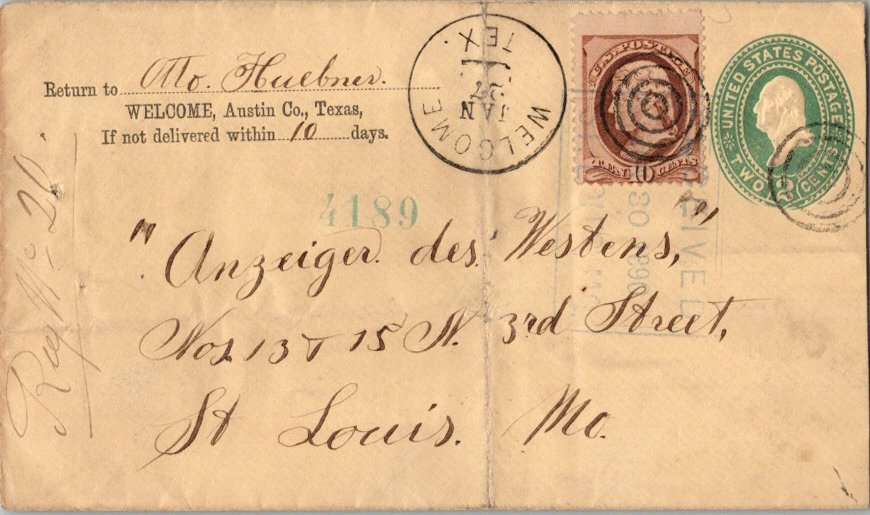 Return to Otto. Huebner.
WELCOME, Austin Co., Texas,
If not delivered within 10 days.
WELCOME TEX.
JAN
27
U.S. POSTAGE
TEN 10 CENTS
UNITED STATES POSTAGE
TWO 2 CENTS
Reg No 20.
4189
30 1890
"Anzeiger des Westens,"
Nos 13 & 15 N. 3rd Street,
St Louis. Mo.